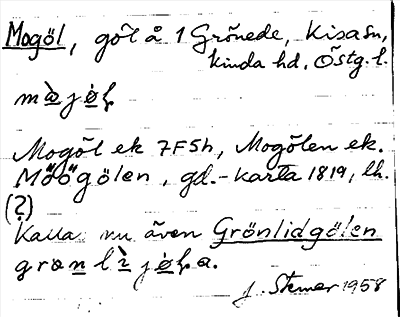 Mogöl, göl å 1 Grönede, Kisa sn,
Kinda hd. Östg. l.
Mogöl ek 7F5h, Mogölen ek.
Möögölen, gd.-karta 1819, lh.
(?)
Kallas nu även Grönlidgölen
J. Stemer 1958